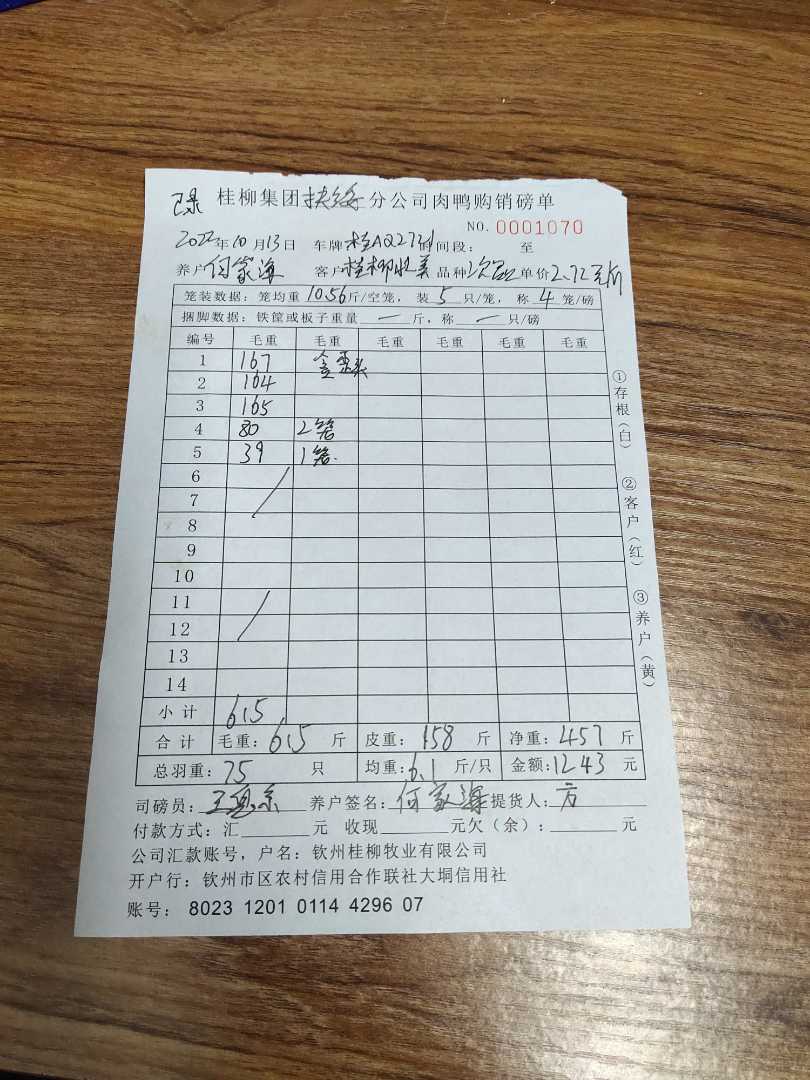 已录 桂柳集团扶绥分公司肉鸭购销磅单
NO. 0001070
2022年10月13日 车牌桂AQ2731时间段： 至
养户何家海 客户桂柳收美 品种次品 单价2.72元/斤
笼装数据：笼均重10.56斤/空笼，装5只/笼，称4笼/磅
捆脚数据：铁筐或板子重量一斤，称一只/磅
编号 毛重 毛重 毛重 毛重 毛重 毛重
1 167 含歪头
2 164
3 165
4 80 2笼
5 39 1笼.
6
7
8
9
10
11
12
13
14
小计 615
合计 毛重：615 斤 皮重：158 斤 净重：457 斤
总羽重：75 只 均重：6.1 斤/只 金额：1243 元
司磅员： 养户签名：何家海 提货人：方
付款方式：汇 元 收现 元欠（余）： 元
公司汇款账号，户名：钦州桂柳牧业有限公司
开户行：钦州市区农村信用合作联社大垌信用社
账号： 8023 1201 0114 4296 07
①存根（白） ②客户（红） ③养户（黄）